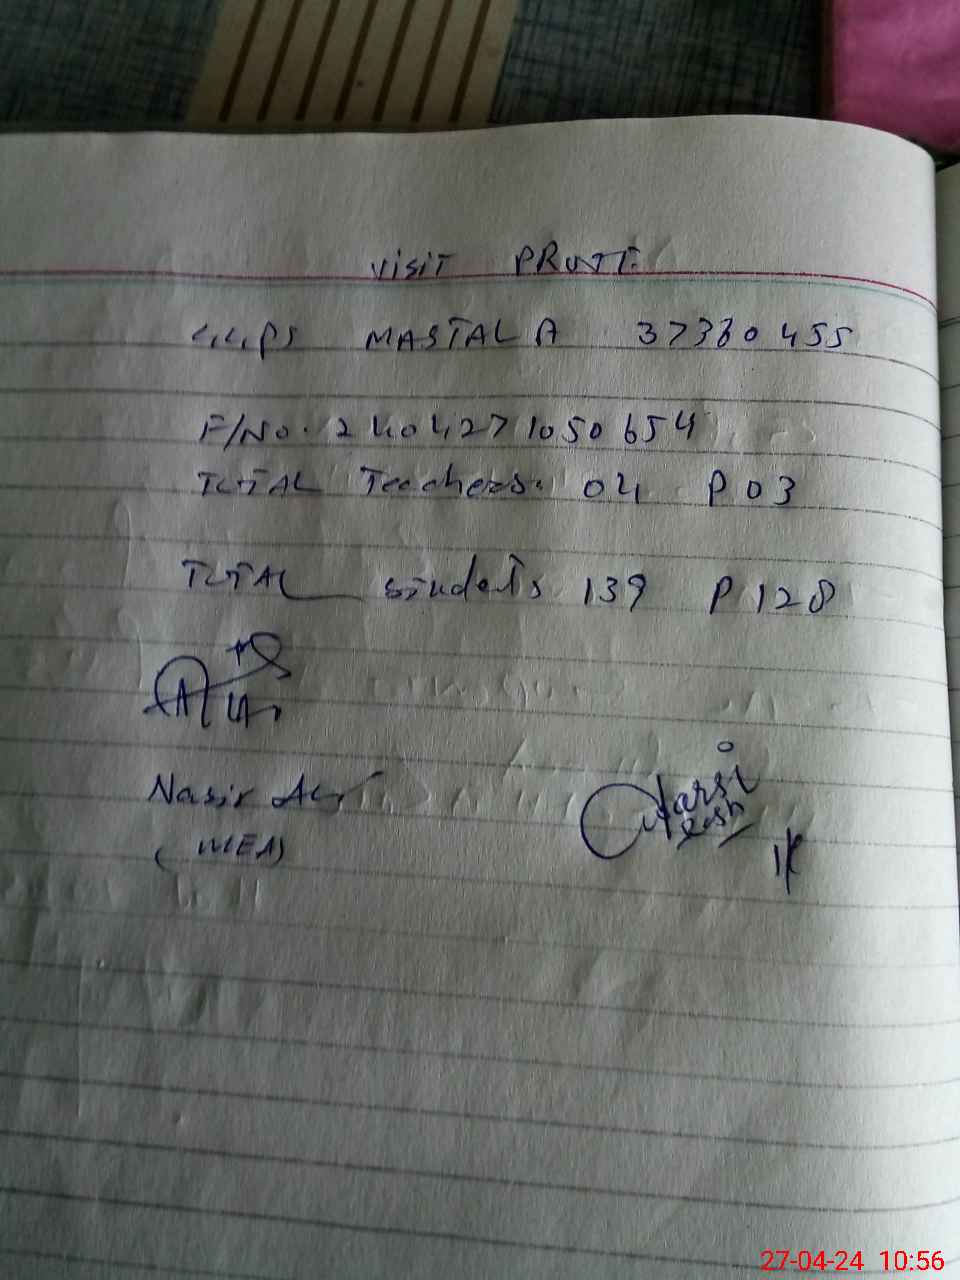 visit PROJE
GGPS MASTALA 37330455
F/No. 2404271050654
TOTAL Teachers. 04 P 03
TOTAL students 139 P 128
Nasir Ali
(MEA)
27-04-24 10:56